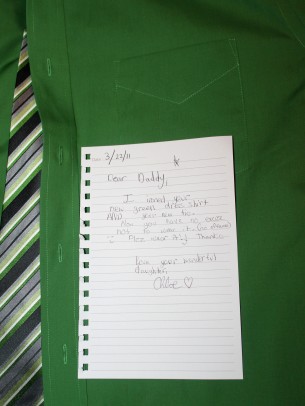 3/22/11
Dear Daddy,
I ironed your
new green dress shirt
AND your new tie.
Now you have no excuse
not to wear it. (no offense)
Plzz wear it! Thanks.
Love your wonderful
daughter,
Chloe ♡